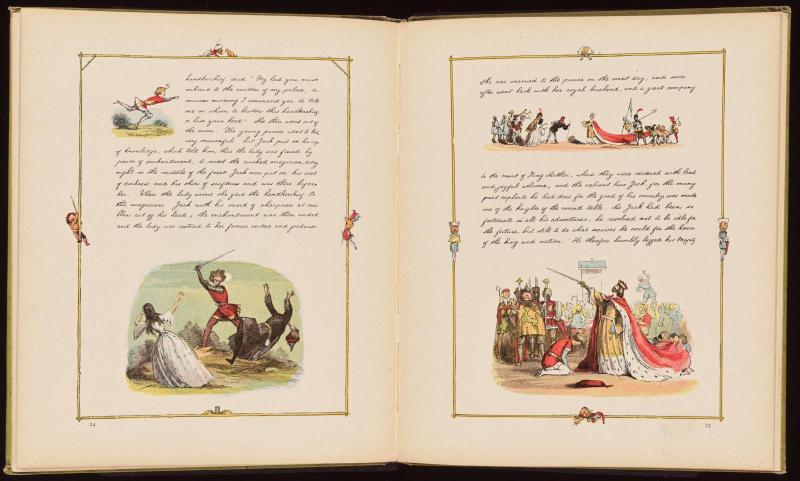 handkerchief said "My lord you must
submit to the custom of my palace, to-
morrow morning I command you to tell
me on whom to bestow this handkerchief,
or lose your head" She then went out of
the room. The young prince went to bed
very mournful but Jack put on his cap
of knowledge, which told him, that the lady was forced, by
power of enchantment, to meet the wicked magician, every
night in the middle of the forest. Jack now put on his coat
of darkness and his shoes of swiftness and was there before
her. When the lady came she gave the handkerchief to
the magician. Jack with his sword of sharpness at one
blow cut off his head, the enchantment was then ended
and the lady was restored to her former virtue and goodness
24
She was married to the prince on the next day, and soon
after went back with her royal husband, and a great company
to the court of King Arthur, where they were received with loud
and joyful welcome, and the valiant hero Jack for the many
great exploits he had done for the good of his country was made
one of the knights of the round table. As Jack had been so
fortunate in all his adventures, he resolved not to be idle for
the future, but still to do what services he could for the honor
of the king and nation. He therefore humbly begged his Majesty
25